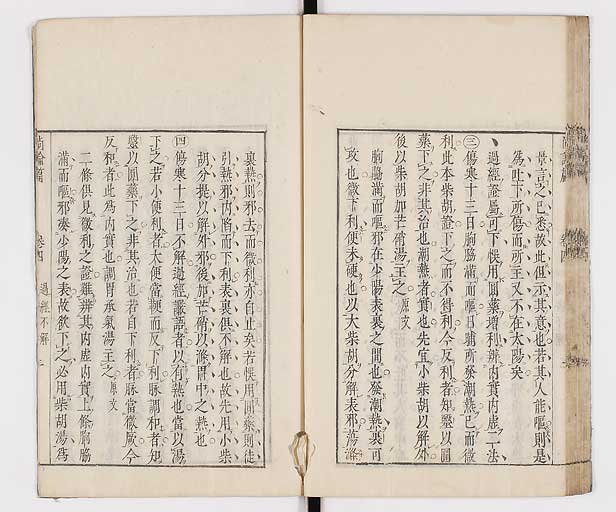 景言之已悉故此但示其意也若其人能嘔則是
為吐下所傷而所主又不在太陽矣
過經證屬可下悞用圓藥增利辨內實內虛二法
㊂傷寒十三日胸脇滿而嘔日晡所發潮熱已而微
利此本柴胡證下之而不得利今反利者知醫以圓
藥下之非其治也潮熱者實也先宜小柴胡以解外
後以柴胡加芒硝湯主之原文
胸脇滿而嘔邪在少陽表裏之間也發潮熱裏可
攻也微下利便未硬也以大柴胡分解表邪蕩滌
裏熱則邪去而微利亦自止矣若悞用圓藥則徒
引熱邪內陷而下利表裏俱不解也故先用小柴
胡分提以解外邪後加芒硝以滌胃中之熱也
四傷寒十三日不解過經譫語者以有熱也當以湯
下之若小便利者大便當鞕而反下利脉調和者知
醫以圓藥下之非其治也若自下利者脉當微厥今
反和者此為內實也調胃承氣湯主之原文
二條俱見微利之證難辨其內虛內實上條胸脇
滿而嘔邪湊少陽之表故欲下之必用柴胡湯為
尚論篇 卷四 過經不解